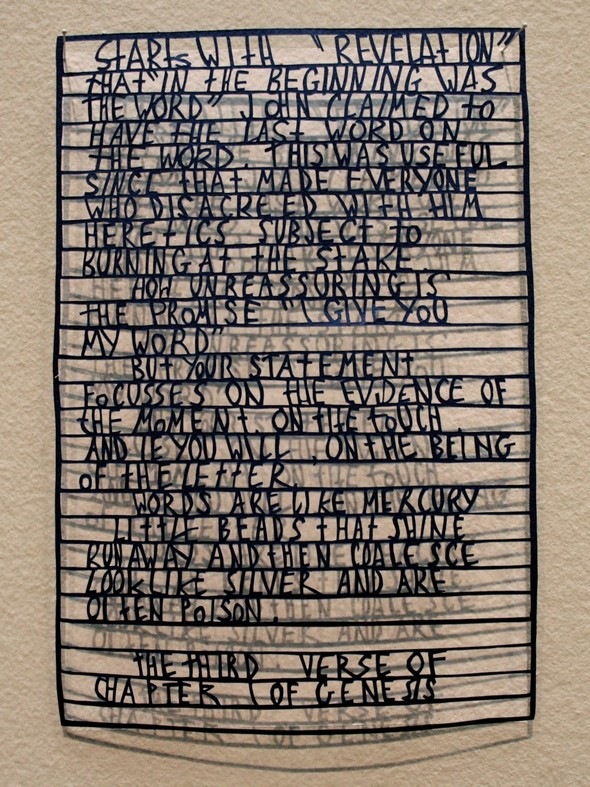 STARTS WITH "REVELATION"
THAT "IN THE BEGINNING WAS
THE WORD" JOHN CLAIMED TO
HAVE THE LAST WORD ON
THE WORD. THIS WAS USEFUL
SINCE THAT MADE EVERYONE
WHO DISAGREED WITH HIM
HERETICS SUBJECT TO
BURNING AT THE STAKE.
HOW UNREASSURING IS
THE PROMISE "I GIVE YOU
MY WORD"
BUT YOUR STATEMENT
FOCUSSES ON THE EVIDENCE OF
THE MOMENT, ON THE TOUCH,
AND IF YOU WILL, ON THE BEING
OF THE LETTER.
WORDS ARE LIKE MERCURY
LITTLE BEADS THAT SHINE
RUN AWAY AND THEN COALESCE
LOOK LIKE SILVER AND ARE
OFTEN POISON.
THE THIRD VERSE OF
CHAPTER I OF GENESIS